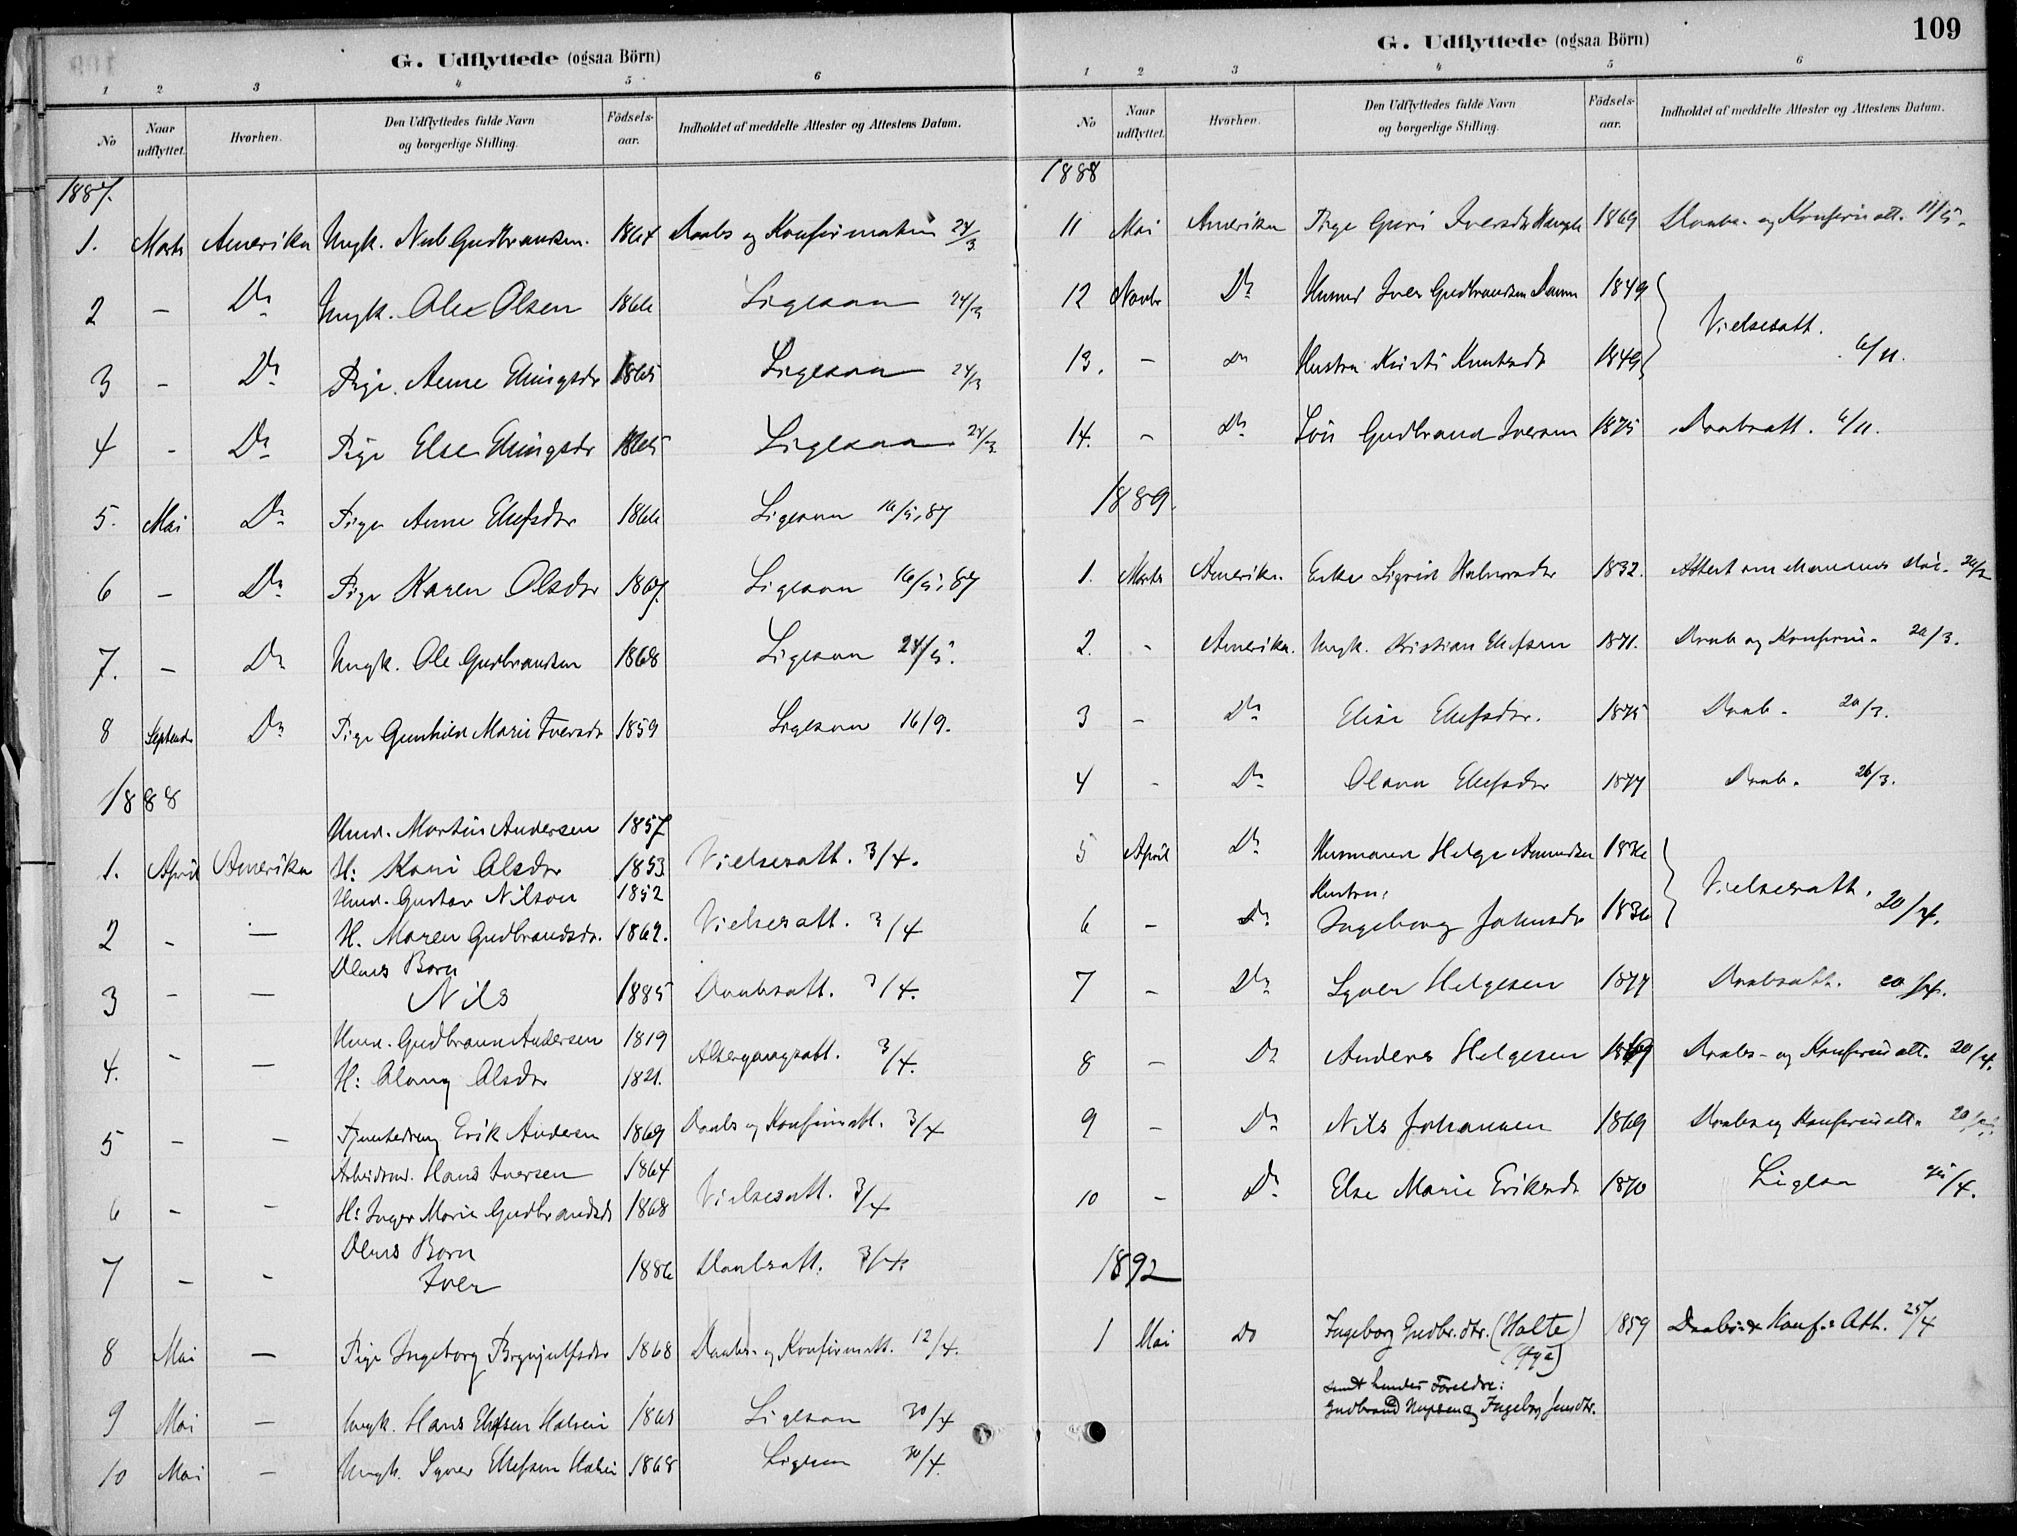 G. Udflyttede (ogsaa Börn)
1 2 3 4 5 6
No Naar udflyttet. Hvorhen. Den Udflyttedes fulde Navn og borgerlige Stilling. Födsels-aar. Indholdet af meddelte Attester og Attestens Datum.
1887.
1. Marts Amerika Ungk. Gudbrandsen. 1864 Daabs og Konfirmation 24/3
2 - Do Ungk. Ole Olsen 1866 Ligesaa 24/3
3 - Do Pige. Anne Ellingsdr 1865 Ligesaa 24/3
4 - Do Pige Else Ellingsdr 1865 Ligesaa 24/3
5. Mai Do Pige Anne Ellefsdr 1866 Ligesaa 16/5, 87
6 - Do Pige Karen Olsdr 1867. Ligesaa 16/5, 87
7. - Do Ungk. Ole Gudbrandsen 1868 Ligesaa 24/5.
8 Septembr Do Pige Gunhild Marie Iversdr 1859 Ligesaa 16/9.
1888
Husmd. Martin Andersen 1857
1. April Amerika H: Kari Olsdr 1853 Vielsesatt. 3/4.
Husmd. Gustav Nilson 1852
2 - — H. Maren Gudbrandsdr. 1862. Vielsesatt. 3/4
Deres Barn
3 - — Nils 1885 Daabsatt. 3/4.
Husmd. Gudbrand Andersen 1819
4. - — H: Olsdr 1821. Altergangsatt. 3/4.
5 - - Tjenestedreng Erik Andersen 1869 Daabs og Konfirmatt. 3/4
Arbeidsmd. Hans Iversen 1864
6 - - H: Inger Marie Gudbrandsdr 1868 Vielsesatt. 3/4
Deres Barn
7 - - Iver 1886 Daabsatt. 3/4.
8 Mai — Pige Ingeborg Brynjulfsdr 1868 Daabs- og Konfirmatt. 12/4.
9 Mai — Ungk. Hans Ellefsen 1865 Ligesaa 30/4
10 Mai — Ungk. Syver Ellefsen 1868 Ligesaa 30/4.
109
G. Udflyttede (ogsaa Börn)
1 2 3 4 5 6
No Naar udflyttet. Hvorhen. Den Udflyttedes fulde Navn og borgerlige Stilling. Födsels-aar. Indholdet af meddelte Attester og Attestens Datum.
1888
11 Mai Amerika Pige Guri Iversdr 1869 Daabs- og Konfirmatt. 11/5.
12 Novbr Do Husmd Iver Gudbrandsen 1849
Vielsesatt. 6/11.
13. - Do Hustru Kristi Knutsdr 1849
14. - Do Søn Gudbrand Iversen 1875 Daabsatt. 6/11.
1889.
1. Marts Amerika. Enke Sigrid Halvorsdr 1832. Attest om Mannens Død.
2. - Amerika. Ungk. Kristian Ellefsen 1871. Daab og Konfirm. 20/3.
3 - Do Elise Ellefsdr. 1875 Daab. 20/3.
4 - Do Olava Ellefsdr 1877 Daab. 26/3.
5 April Do Husmanden Helge Amundsen 1836
Hustru: Vielsesatt. 20/4.
6 - Do Ingeborg Johnsdr 1836
7 - Do Syver Helgesen 1877 Daabsatt. 20/4.
8 - Do Anders Helgesen 1869 Daabs- og Konfirmatt. 20/4.
9 - Do Nils Johansen 1869 Daabs og Konfirmatt.
10 - Do Else Marie Eriksdr 1870 Ligesaa
1892
1 Mai Do Ingeborg Gudbr.dtr. (Holte) 1859 Daabs- & Konf.- Att. 25/4
samt hendes Foreldre:
Gudbrand og Ingeborg